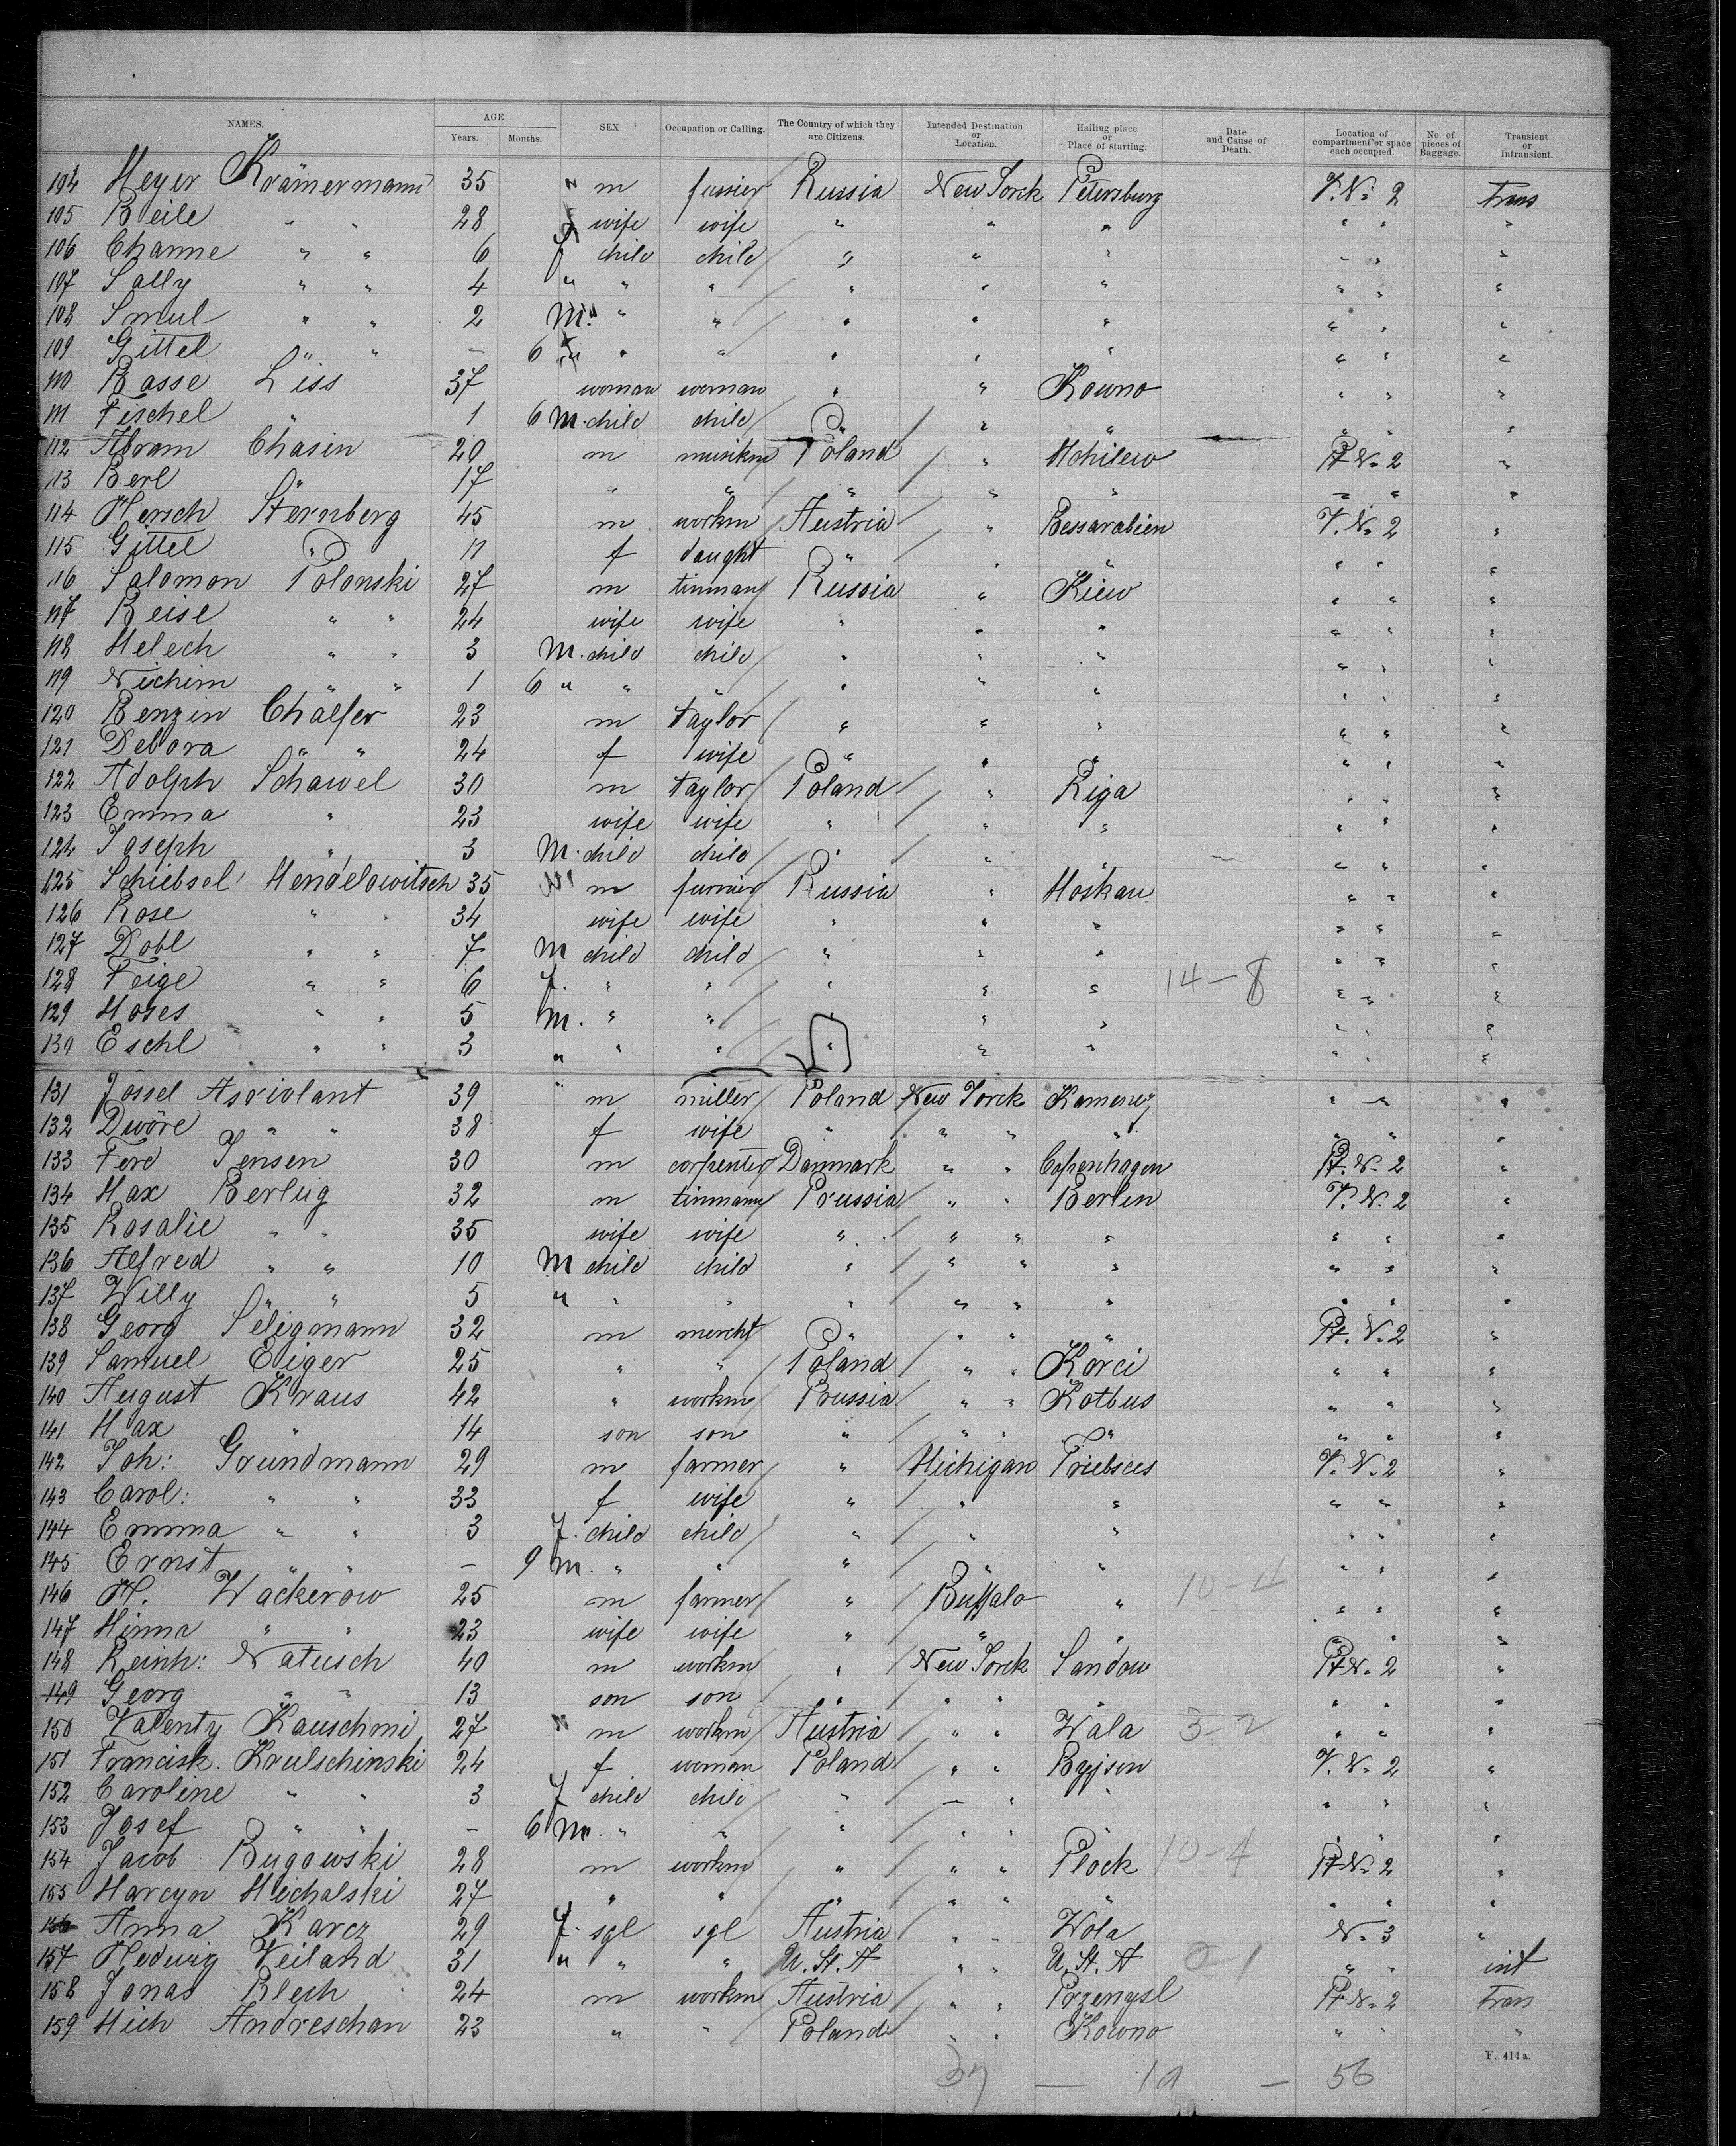 NAMES. AGE Years. Months. SEX Occupation or Calling. The Country of which they are Citizens. Intended Destination or Location. Hailing place or Place of starting. Date and Cause of Death. Location of compartment or space each occupied. No. of pieces of Baggage. Transient or Intransient.
104 Meyer Krämermann 35 m Russia New Yorck Petersburg V. No 2 trans
105 Beile " " 28 f wife wife " " " " " "
106 Channe " " 6 f child child " " " " " "
107 Sally " " 4 " " " " " " " " "
108 Smul " " 2 M. " " " " " " " "
109 Gittel " " - 6 f " " " " " " " "
110 Basse Liss 37 woman woman " " Kowno " " "
111 Fischel " 1 6 M. child child " " " " " "
112 Abram Chasin 20 m musikm Poland " Mohilew Pt No 2 "
113 Berl " 17 " " " " " " " "
114 Hersch Sternberg 45 m workm Austria " Bessarabien V. No 2 "
115 Gittel " 11 f daught " " " " " "
116 Salomon Polonski 27 m tinmann Russia " Kiew " " "
117 Reise " " 24 wife wife " " " " " "
118 Melech " " 3 M. child child " " " " " "
119 Nichim " " 1 6 " " " " " " " " "
120 Benzin Chaefer 23 m taylor " " " " " "
121 Debora " " 24 f wife " " " " " "
122 Adolph Schawel 30 m taylor Poland " Riga " " "
123 Emma " 23 wife wife " " " " " "
124 Joseph " 3 M. child child " " " " " "
125 Schiebsel Mendelowitsch 35 m furrier Russia " Moskau " " "
126 Rose " " 34 wife wife " " " " " "
127 Dobl " " 7 M child child " " " " " "
128 Feige " " 6 f. " " " " " 14-8 " " "
129 Moses " " 5 M. " " " " " " " "
130 Eschl " " 3 " " " " " " " " "
131 Jossel Asriolant 39 m miller Poland New Yorck Kamenez " " "
132 Dwöre " " 38 f wife " " " " " " "
133 Ferd Jensen 30 m carpenter Danmark " " Copenhagen Pt. No 2 "
134 Max Berlug 32 m tinmann Prussia " " Berlin V. No 2 "
135 Rosalie " " 35 wife wife " " " " " " "
136 Alfred " " 10 M child child " " " " " " "
137 Willy " " 5 " " " " " " " " " "
138 Georg Seligmann 32 m mercht " " " " Pt. No 2 "
139 Samuel Eiger 25 " " Poland " " Korci " " "
140 August Kraus 42 " workm Prussia " " Kotbus " " "
141 Max " 14 son son " " " " " " "
142 Joh: Grundmann 29 m farmer " Michigan Triebsees V. No 2 "
143 Carol: " " 33 f wife " " " " " "
144 Emma " " 3 f. child child " " " " " "
145 Ernst " " - 9 M. " " " " " " " "
146 H. Wackerow 25 m farmer " Buffalo " 10-4 " " "
147 Minna " " 23 wife wife " " " " " "
148 Reinh: Natusch 40 m workm " New Yorck Sandow Pt No 2 "
149 Georg " " 13 son son " " " " " " "
150 Valenty Kauschmi 27 m workm Austria " " Wala 3-2 " " "
151 Francisk. Krulschinski 24 f woman Poland " " V. No 2 "
152 Caroline " " 3 f child child " " " " " " "
153 Josef " " - 6 M. " " " " " " " " "
154 Jacob Bugowski 28 m workm " " " Plock 10-4 Pt No 2 "
155 Marcyn Michalski 27 " " " " " " " " "
156 Anna Karcz 29 f. sgl sgl Austria " " Wola No 3 "
157 Hedwig Veiland 31 " " " U. St. A " " U. St. A 0-1 " " int
158 Jonas Blech 24 m workm Austria " " Przemysl Pt No 2 trans
159 Mich Andreschan 23 " " Poland " " Kowno " " "
F. 414a.
56